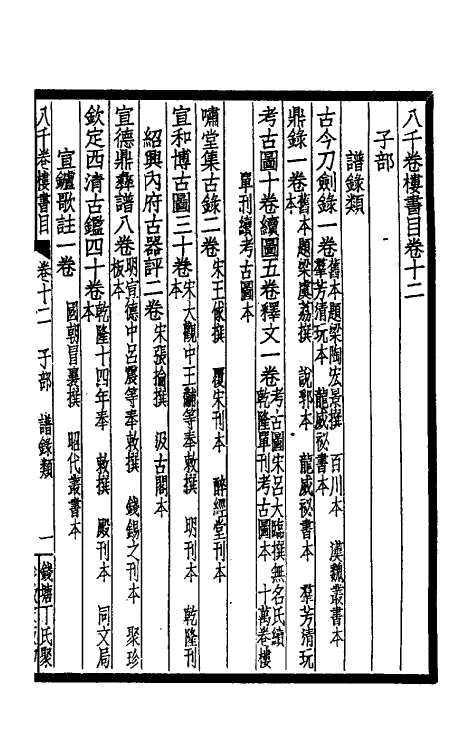 八千卷樓書目卷十二
子部
譜錄類
古今刀劍錄一卷 舊本題梁陶宏景撰 百川本 漢魏叢書本 羣芳清玩本 龍威祕書本
鼎錄一卷 舊本題梁虞荔撰 說郛本 龍威祕書本 羣芳清玩本
考古圖十卷續圖五卷釋文一卷 考古圖宋呂大臨撰無名氏續 乾隆單刊考古圖本 十萬卷樓
單刊續考古圖本
嘯堂集古錄二卷 宋王俅撰 覆宋刊本 醉經堂刊本
宣和博古圖三十卷 宋大觀中王黼等奉敕撰 明刊本 乾隆刊本
紹興內府古器評二卷 宋張掄撰 汲古閣本
宣德鼎彝譜八卷 明宣德中呂震等奉敕撰 錢錫之刊本 聚珍板本
欽定西清古鑑四十卷 乾隆十四年奉敕撰 殿刊本 同文局本
宣鑪歌註一卷 國朝冒襄撰 昭代叢書本
八千卷樓書目 卷十二 子部 譜錄類 一 錢塘丁氏聚